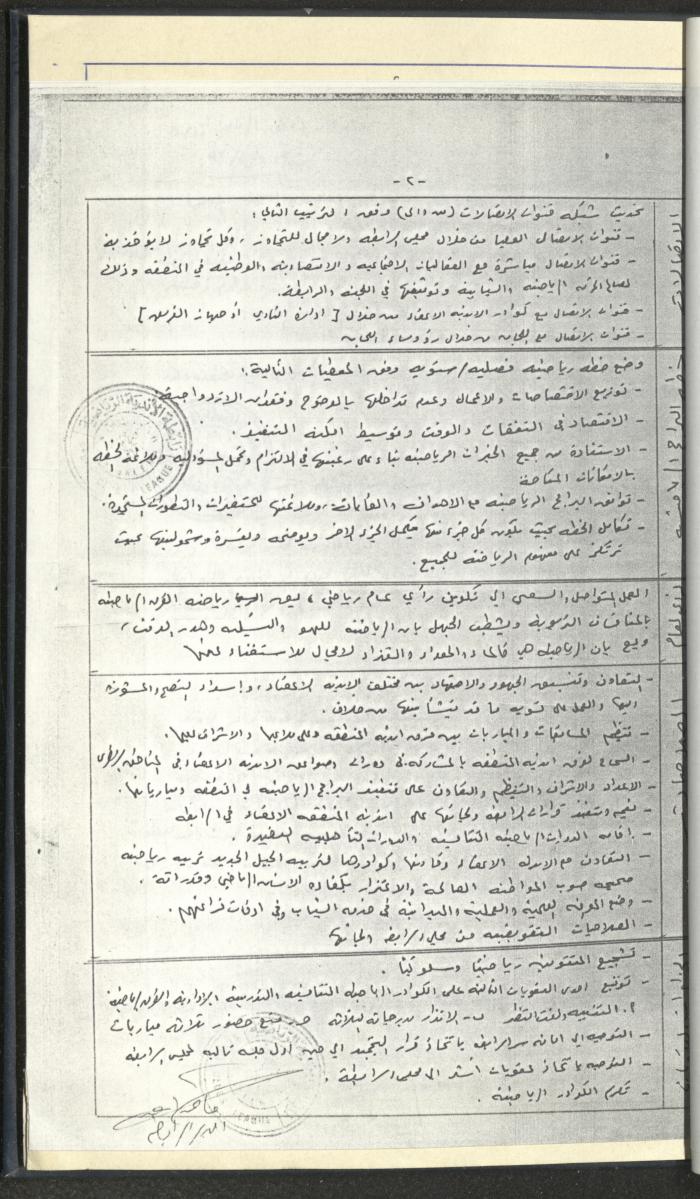 - ٢ -
تحديث شبكة قنوات الاتصالات (من والى) وفق الترتيب التالي:
- قنوات الاتصال العليا من خلال مجلس الرابطة ولا مجال للتجاوز، وكل تجاوز لا يؤخذ به
- قنوات الاتصال مباشرة مع الفعاليات الاجتماعية والاقتصادية والوطنية في المنطقة وذلك
لصالح الحركة الرياضية والشبابية وتوثيقها في اللجنة والرابطة.
- قنوات الاتصال مع كوادر الاندية الاعضاء من خلال [ ادارة النادي أو جهاز الفريق ]
- قنوات الاتصال مع اللجان من خلال رؤوساء اللجان
وضع خطة رياضية فصلية/سنوية وفق المعطيات التالية:
- توزيع الاختصاصات والاعمال وعدم تداخلها بالوضوح وفقدان الازدواجية.
- الاقتصاد في النفقات والوقت وتوسيط امكنة التنفيذ.
- الاستفادة من جميع الخبرات الرياضية بناء على رغبتها في الالتزام وتحمل المسؤولية وملائمة الخطة
بالامكانات المتاحة
- توافق البرامج الرياضية مع الاهداف والغايات، وملائمتها للمتغيرات والتطورات المستجدة.
- تكامل الخطة بحيث يكون كل جزء منها يكمل الجزء الاخر ويوضحه ويفسره وشموليتها بحيث
ترتكز على مفهوم الرياضة للجميع.
العمل المتواصل والسعي الى تكوين رأي عام رياضي،
بان الرياضة للهو والتسلية وهدر الوقت،
بان الرياضة هي كالماء والهواء والغذاء لامجال للاستغناء عنها
- التعاون وتنسيق الجهود والاجتهاد بين مختلف الاندية الاعضاء، واسداء النصح والمشورة
اليها والعمل على تسوية ما قد ينشأ بينها من خلاف.
- تنظيم المسابقات والمباريات بين فرق اندية المنطقة وعلى ملاعبها والاشراف عليها.
- السماح لفرق اندية المنطقة بالمشاركة في دورات الاندية الاعضاء في المناطق الاخرى
- الاعداد والاشراف والتنظيم والتعاون على تنفيذ البرامج الرياضية في المنطقة ومبارياتها.
- تنفيذ قرارات الرابطة ولجانها على اندية المنطقة الاعضاء في الرابطة
- اقامة الدورات الرياضية التثقيفية والدورات التأهيلية
- التعاون مع الاندية الاعضاء وقادتها وكوادرها لتربية الجيل الجديد تربية رياضية
صحيحة صوب المواطنة الصالحة والاعتزاز بكفاءة الانسان الرياضي وقدراته.
- وضع المعرفة العلمية والعملية والميدانية في خدمة الشباب وفي اوقات فراغهم.
- الصلاحيات التفويضية من مجلس الرابطة ولجانها
- تشجيع المتفوقين رياضيا وسلوكيا.
- توقيع احدى العقوبات التالية على الكوادر الرياضية
أ. التنبيه ولفت النظر ب- الانذار بدرجاته الثلاثة منع حضور ثلاثة مباريات
- التوصية الى امانة سر الرابطة باتخاذ قرار التجميد الى حين اول جلسة تالية لمجلس الرابطة
- التوصية باتخاذ عقوبات أشد الى مجلس الرابطة.
- تكريم الكوادر الرياضية.